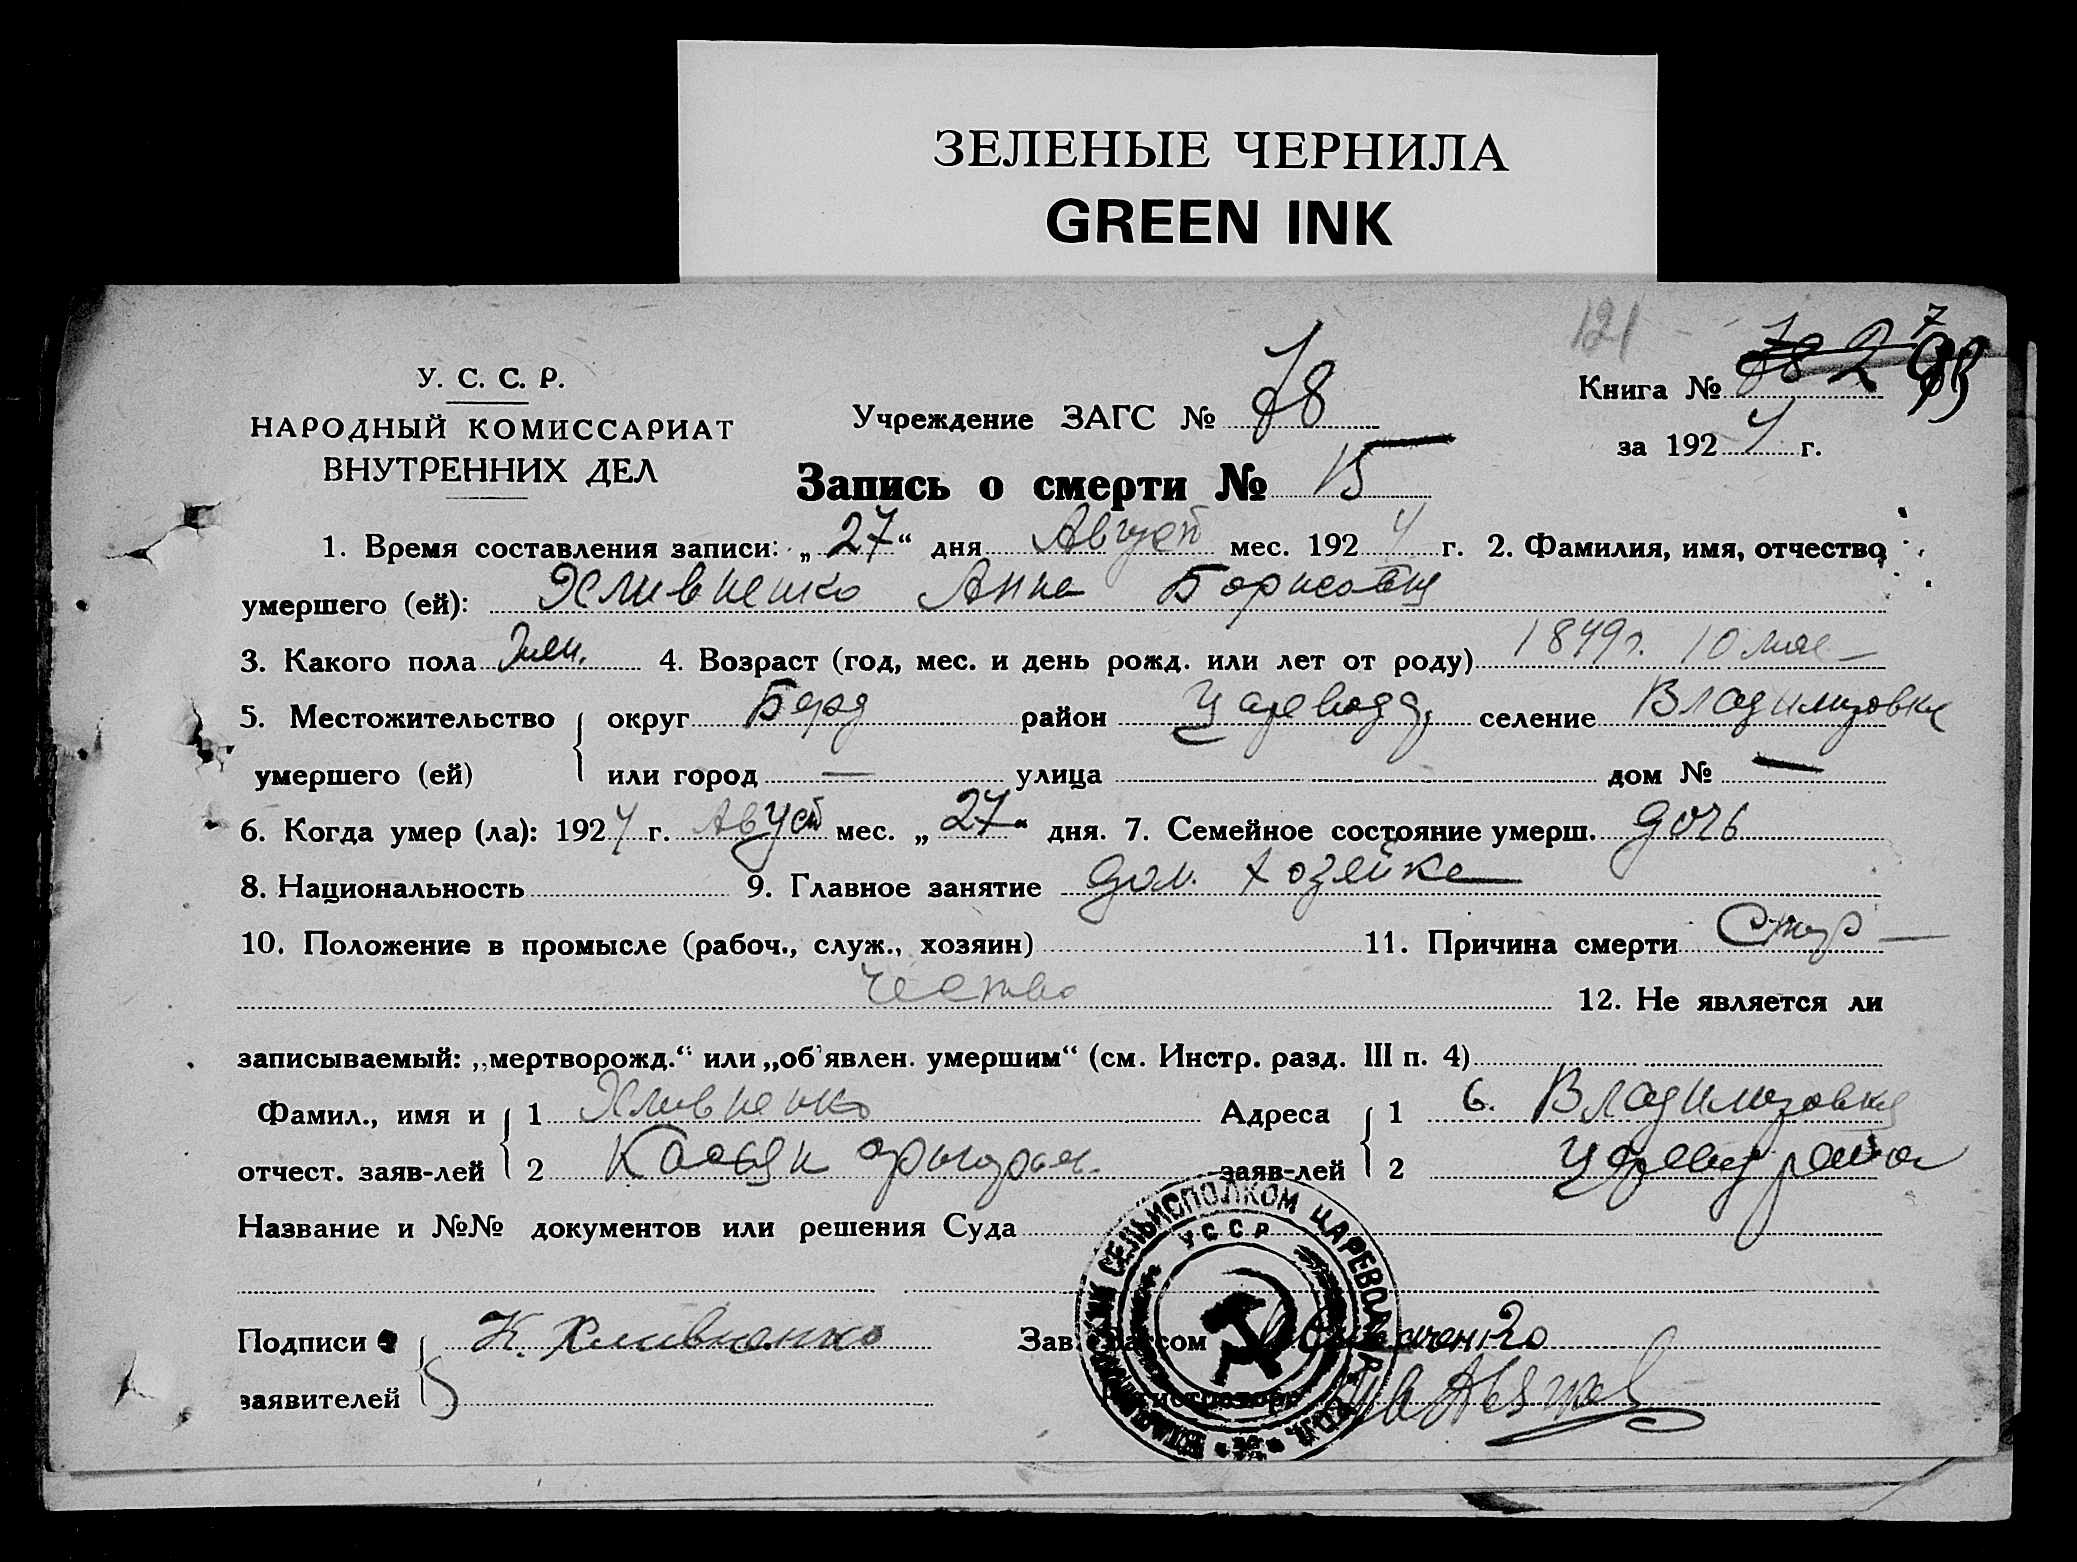 ЗЕЛЕНЫЕ ЧЕРНИЛА
GREEN INK
121
У. С. С. Р.
НАРОДНЫЙ КОМИССАРИАТ
ВНУТРЕННИХ ДЕЛ
Учреждение ЗАГС № 78
Книга № 78 2
за 1924 г.
Запись о смерти № 15
1. Время составления записи: „27“ дня Август мес. 1924 г. 2. Фамилия, имя, отчество
умершего (ей): Хливненко Анна Борисовна
3. Какого пола жен. 4. Возраст (год, мес. и день рожд. или лет от роду) 1849 г. 10 мая
5. Местожительство округ Берд район Царевод, селение Владимировка
умершего (ей) или город — улица дом № —
6. Когда умер (ла): 1924 г. Август мес. „27“ дня. 7. Семейное состояние умерш. дочь
8. Национальность 9. Главное занятие дом. хозяйка
10. Положение в промысле (рабоч., служ., хозяин) 11. Причина смерти Стар-
чество 12. Не является ли
записываемый: „мертворожд.“ или „об'явлен. умершим“ (см. Инстр. разд. III п. 4)
Фамил., имя и 1 Хливненко Адреса 1 с. Владимировка
отчест. заяв-лей 2 Касьян заяв-лей 2 Царевод района
Название и №№ документов или решения Суда
Подписи К. Хливненко Зав. Загсом
заявителей Регистратор
СЕЛЬИСПОЛКОМ ЦАРЕВОД
УССР